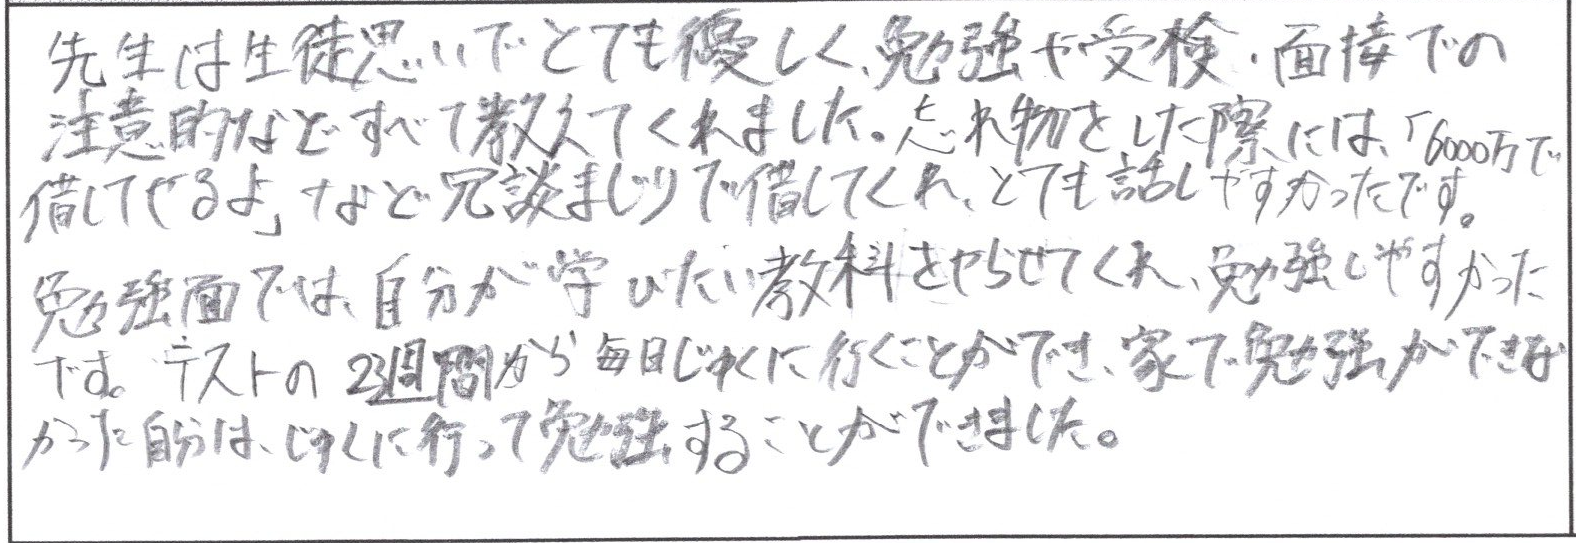 先生は生徒思いでとても優しく、勉強や受検・面接での
注意的などすべて教えてくれました。忘れ物をした際には、「6000万で
借してやるよ」など冗談まじりで借してくれ、とても話しやすかったです。
勉強面では、自分が学びたい教科をやらせてくれ、勉強しやすかった
です。テストの23週間から毎日じゅくに行くことができ、家で勉強ができな
かった自分は、じゅくに行って勉強することができました。